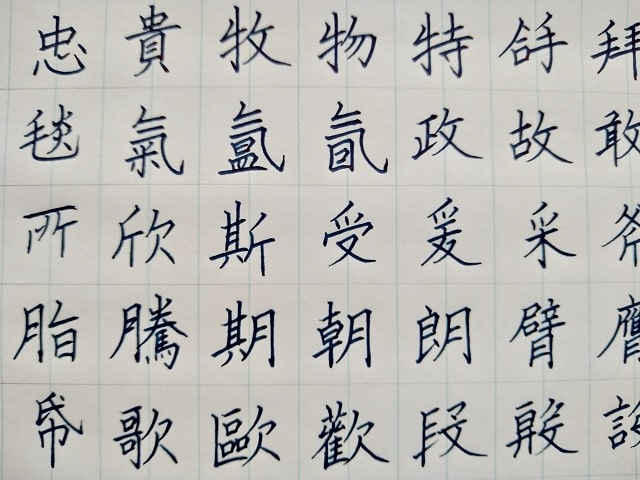 忠貴牧物特拜
毯氣氳政故敢
所欣斯受爰采
脂騰期朝朗臂膺
帋歌歐歡段